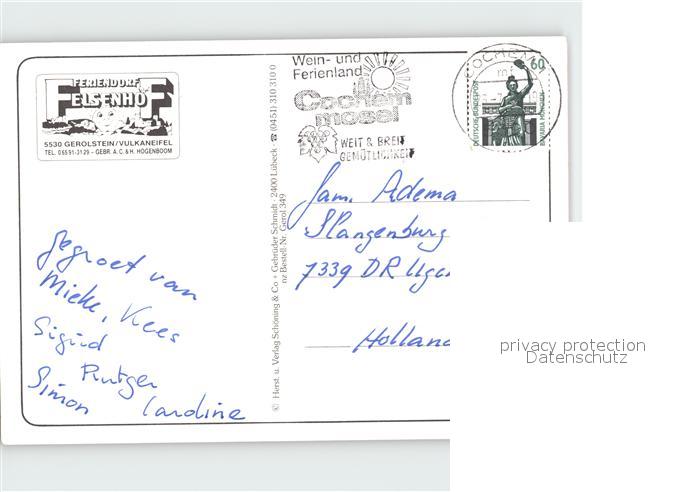 FERIENDORF
FELSENHOF
5530 GEROLSTEIN/VULKANEIFEL
TEL. 06591-3129 - GEBR. A.C. & H. HOGENBOOM
Wein- und
Ferienland
Cochem
mosel
WEIT & BREIT
GEMÜTLICHKEIT
COCHEM
60
DEUTSCHE BUNDESPOST
BAVARIA MÜNCHEN
© Herst. u. Verlag Schöning & Co + Gebrüder Schmidt · 2400 Lübeck · ☎ (0451) 310 310 0
nz Bestell-Nr. Gerol 349
Fam. Adema
Slangenburg
7339 DR Ugc
Holland
gegroet van
Mieke, Kees
Sigrid
Rutger
Simon Caroline
privacy protection
Datenschutz